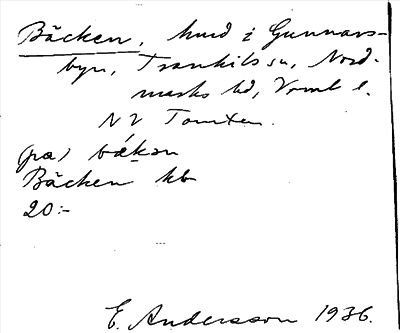 Bäcken, hmd i Gunnars-
byn, Trankils sn, Nord-
marks hd, Vrml l.
NV Tomten.
(pa) bækən
Bäcken hb
20:-
E. Andersson 1936.